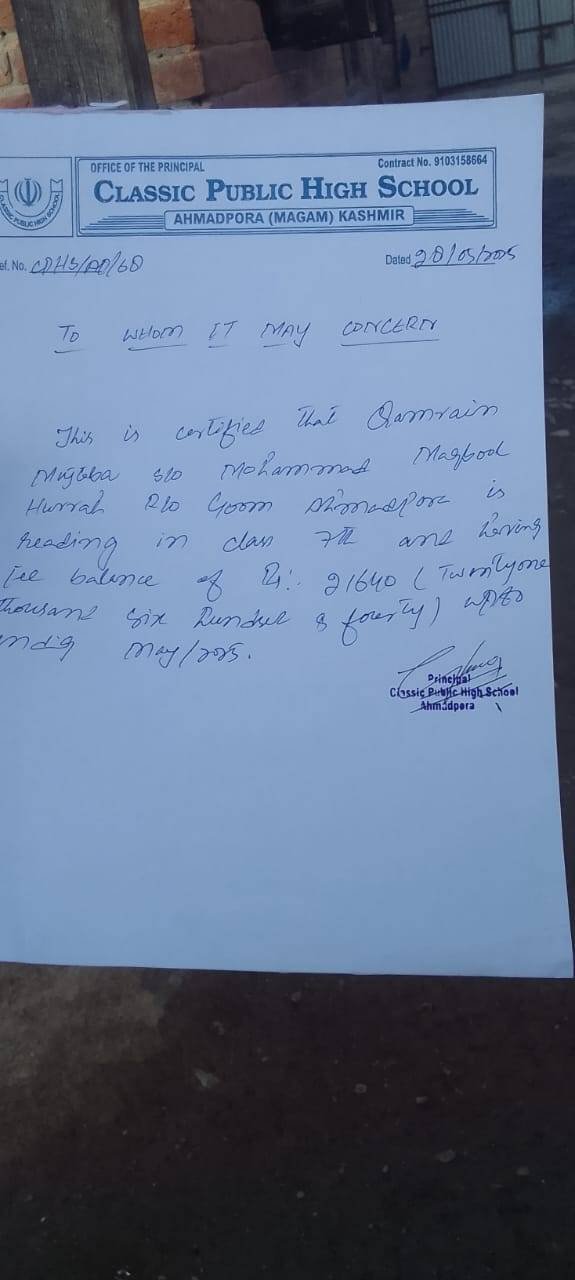 OFFICE OF THE PRINCIPAL
Contract No. 9103158664
CLASSIC PUBLIC HIGH SCHOOL
AHMADPORA (MAGAM) KASHMIR
CLASSIC PUBLIC HIGH SCHOOL
ef. No. CPHS/AP/60
Dated 28/05/2025
TO WHOM IT MAY CONCERN
This is certified that Qamrain
Mujtaba S/o Mohammad Maqbool
Hurrah R/o Goom Ahmadpora is
reading in class 7th and having
fee balance of Rs: 21640 (Twentyone
thousand six hundred & fourty) upto
ending May/2025.
Principal
Classic Public High School
Ahmadpora